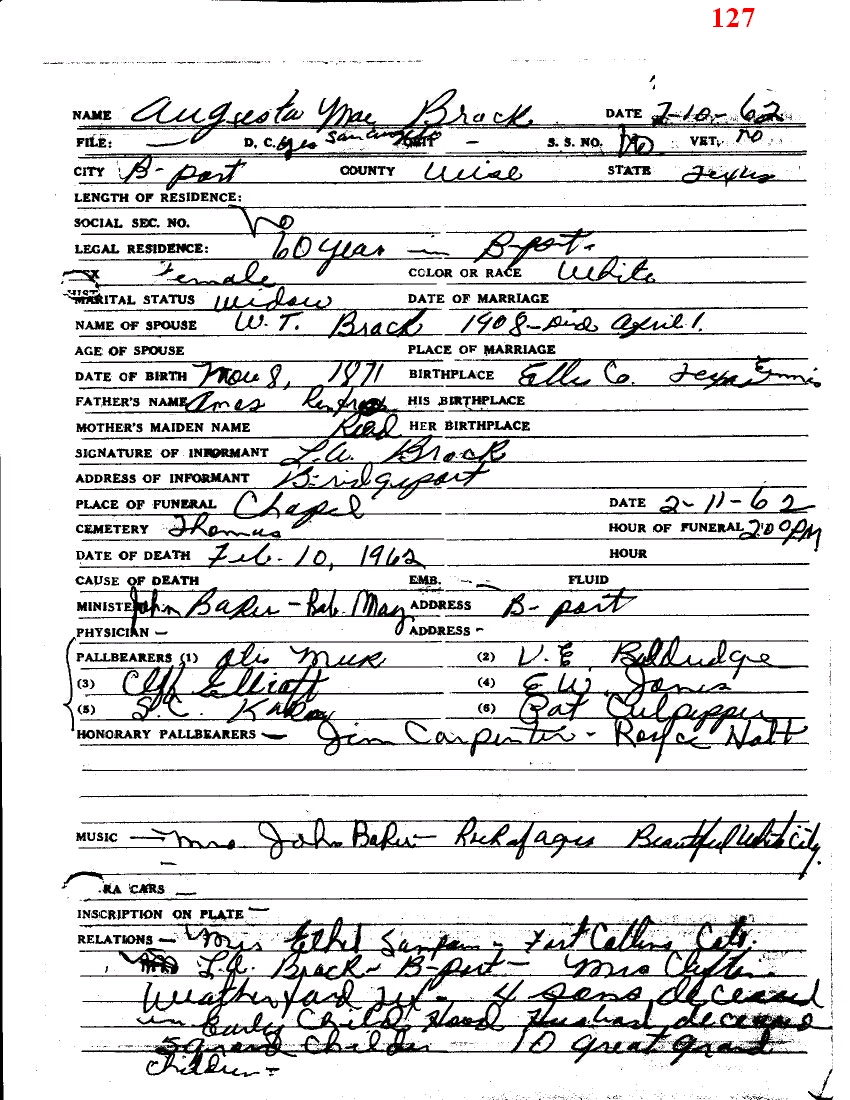 127
NAME Augusta Mae Brock DATE 2-10-62
FILE: — D. C. yes San Angelo - S. S. NO. No VET. no
CITY B-port COUNTY Wise STATE Texas
LENGTH OF RESIDENCE:
SOCIAL SEC. NO. No
LEGAL RESIDENCE: 60 year in B-port.
Female COLOR OR RACE White
MARITAL STATUS widow DATE OF MARRIAGE
NAME OF SPOUSE W. T. Brock 1908 - Died April 1.
AGE OF SPOUSE PLACE OF MARRIAGE
DATE OF BIRTH Nov 8, 1871 BIRTHPLACE Ellis Co. Texas Ennis
FATHER'S NAME Amos Renfro HIS BIRTHPLACE
MOTHER'S MAIDEN NAME Reed HER BIRTHPLACE
SIGNATURE OF INFORMANT L.A. Brock
ADDRESS OF INFORMANT Bridgeport
PLACE OF FUNERAL Chapel DATE 2-11-62
CEMETERY Thomas HOUR OF FUNERAL 2:00 PM
DATE OF DEATH Feb. 10, 1962 HOUR
CAUSE OF DEATH EMB. - FLUID
MINISTER John Baker - Bob May ADDRESS B-port
PHYSICIAN — ADDRESS -
PALLBEARERS (1) (2) V. E. Balldridge
(3) Cliff Elliott (4) E W. Jones
(5) S.C. (6) Pat Culpepper
HONORARY PALLBEARERS — Jim Carpenter - Royce Holt
MUSIC — Mrs John Baker - Rock of ages Beautiful White City.
RA CARS —
INSCRIPTION ON PLATE —
RELATIONS — Mrs Ethel Sampson - Fort Collins Colo.
L.A. Brock - B-port - Mrs Clifton
Weatherford Tex - 4 sons deceased
in Early Child Hood Husband deceased
5 grand Children 10 great grand
Children -